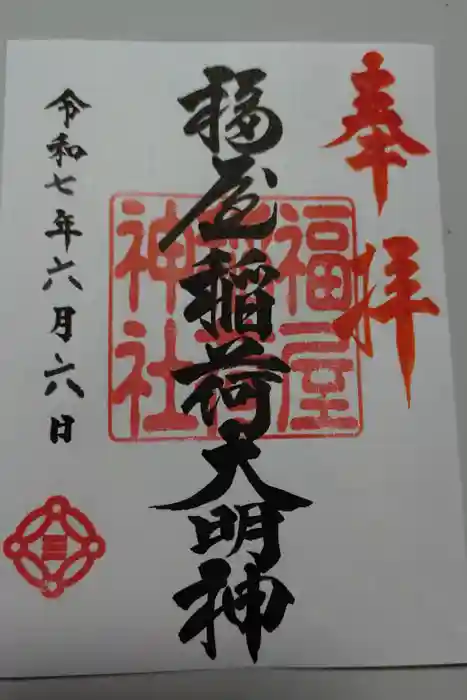 奉拝
福屋稲荷大明神
福屋稲荷神社
令和七年六月六日
三